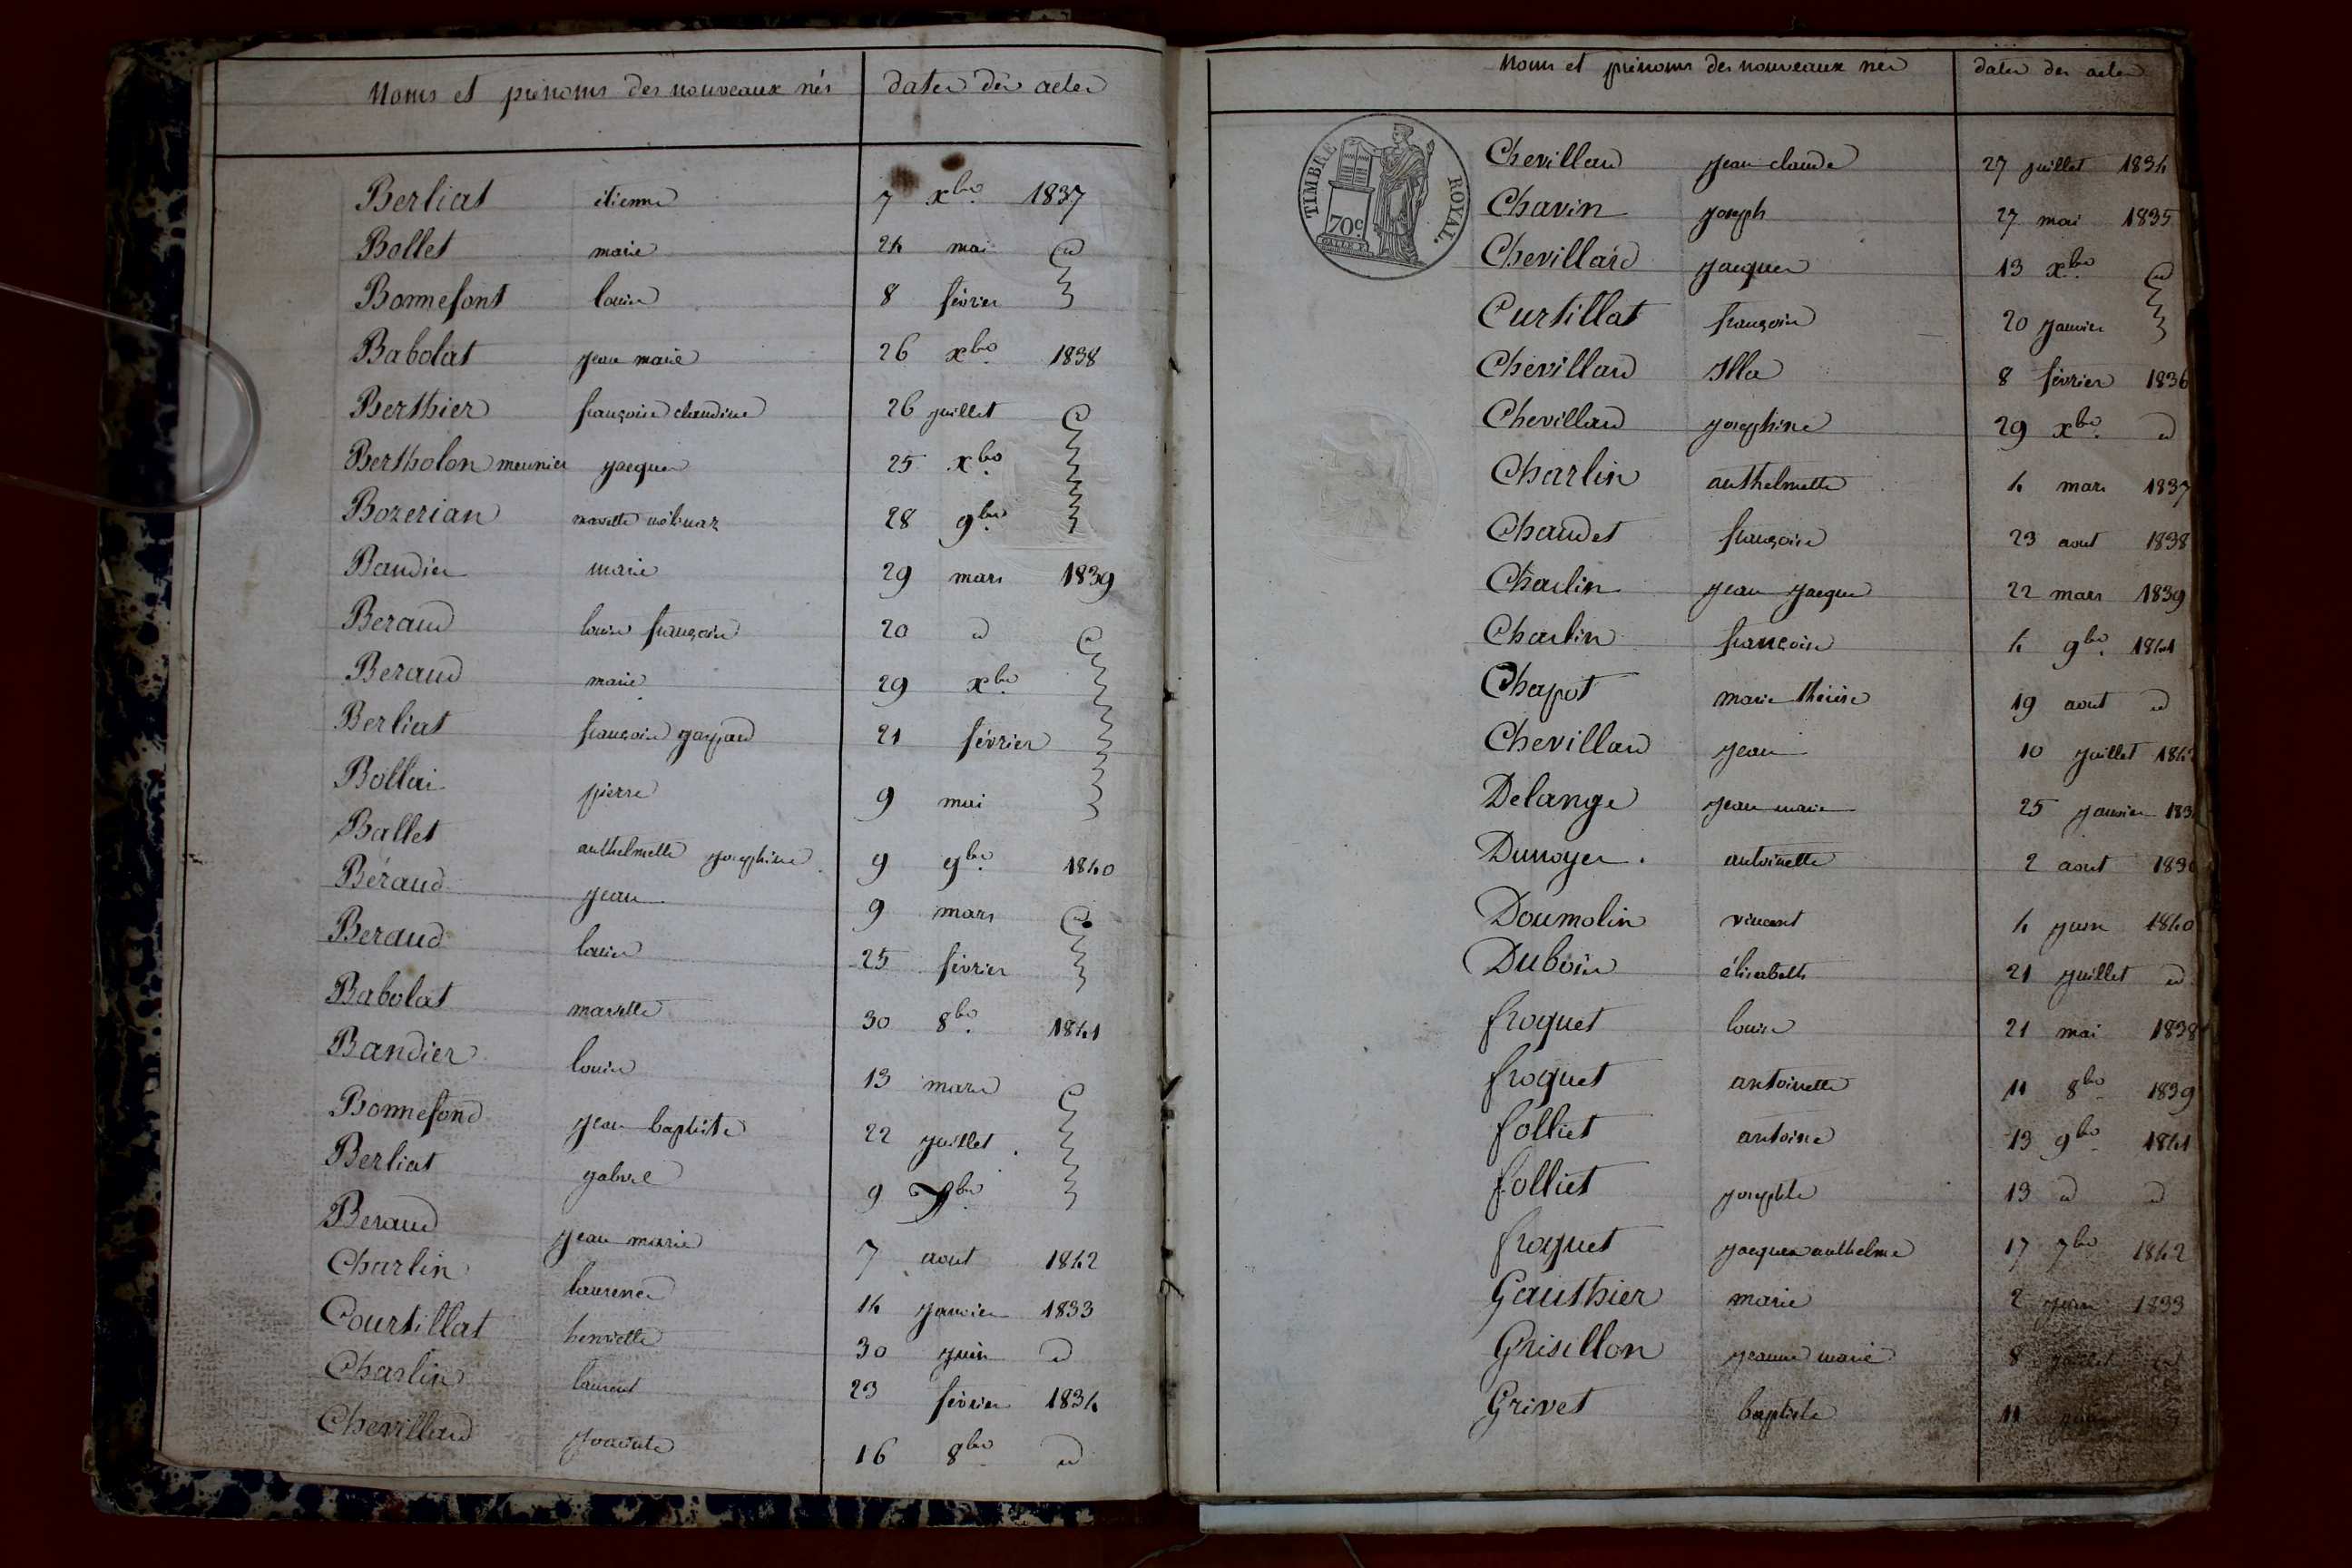 Noms et prénoms des nouveaux nés dates des actes
Berliat étienne 7 xbre 1837
Bollet marie 24 mai id
Bonnefont louis 8 février
Babolat jean marie 26 xbre 1838
Berthier françoise claudine 26 juillet
Bertholon meunier jacques 25 xbre
Bozerian 28 9bre
Baudier marie 29 mars 1839
Beraud louis françois 20 id
Beraud marie 29 xbre
Berliat françois gaspard 21 février
Bollai pierre 9 mai
Ballet anthelmette josephine 9 9bre 1840
Béraud jean 9 mars id
Beraud louis 25 février
Babolat mariette 30 8bre 1841
Bandier louis 13 mars
Bonnefond jean baptiste 22 juillet
Berliat gabriel 9
Beraud jean marie 7 aout 1842
Charlin laurence 14 janvier 1833
Courtillat henriette 30 juin id
Charlin laurent 23 février 1834
Chevillard 16 8bre id
Noms et prénoms des nouveaux nés dates des actes
TIMBRE ROYAL.
70c.
Chevillard jean claude 27 juillet 1834
Chavin joseph 27 mai 1835
Chevillard jacques 13 xbre id
Curtillat 20 janvier
Chevillard 8 février 1836
Chevillard josephine 29 xbre id
Charlin anthelmette 4 mars 1837
Chaudet 23 aout 1838
Charlin jean jacques 22 mars 1839
Charlin 4 9bre 1841
Chapot marie thérèse 19 aout id
Chevillard jean 10 juillet 184
Delange jean marie 25 janvier 183
Dunoyer antoinette 2 aout 183
Doumolin vincent 4 juin 1840
Dubois élisabeth 21 juillet id
froquet louis 21 mai 1838
froquet antoinette 11 8bre 1839
folliet antoine 13 9bre 1841
folliet josephte 13 id id
froquet jacques anthelme 17 7bre 1842
Gauthier marie 2 juin 1833
Grisillon jeanne marie 8 juillet id
Grivet baptiste 11